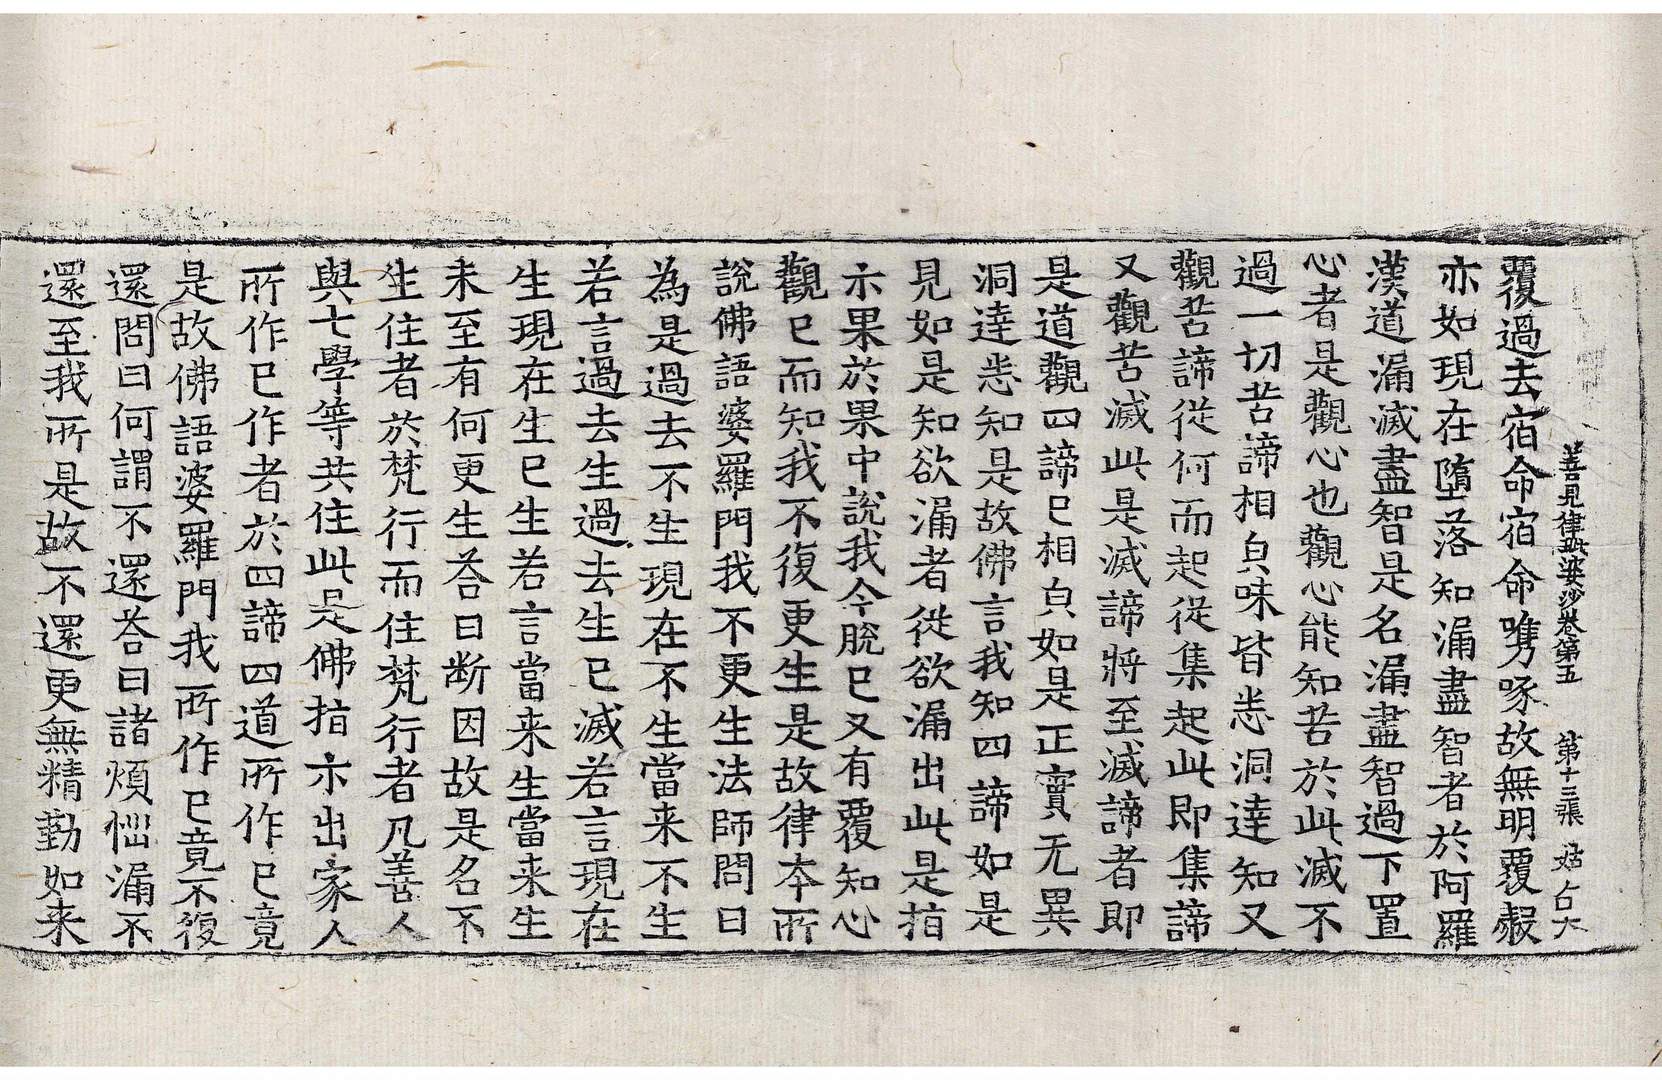 善見律毗婆沙卷第五　第十三張　姑占大
覆過去宿命宿命㗻啄故無明覆㲉
亦如現在墮落知漏盡智者於阿羅
漢道漏滅盡智是名漏盡智過下置
心者是觀心也觀心能知苦於此滅不
過一切苦諦相皃味皆悉洞達知又
觀苦諦從何而起從集起此即集諦
又觀苦滅此是滅諦將至滅諦者即
是道觀四諦已相皃如是正實无異
洞達悉知是故佛言我知四諦如是
見如是知欲漏者從欲漏出此是指
示果於果中說我今脫已又有覆知心
觀已而知我不復更生是故律夲所
說佛語婆羅門我不更生法師問曰
為是過去不生現在不生當来不生
若言過去生過去生已滅若言現在
生現在生已生若言當来生當来生
未至有何更生荅曰断因故是名不
生住者於梵行而住梵行者凡善人
與七學等共住此是佛指示出家人
所作已作者於四諦四道所作已竟
是故佛語婆羅門我所作已竟不復
還問曰何謂不還荅曰諸煩惱漏不
還至我所是故不還更無精勤如来